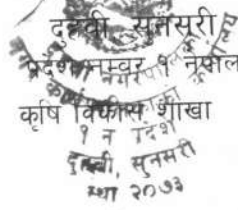 दुहवी सुनसरी
प्रदेश नम्बर १ नेपाल
कृषि विकास शाखा
१ न प्रदेश
दुहवी, सुनसरी
२०७३